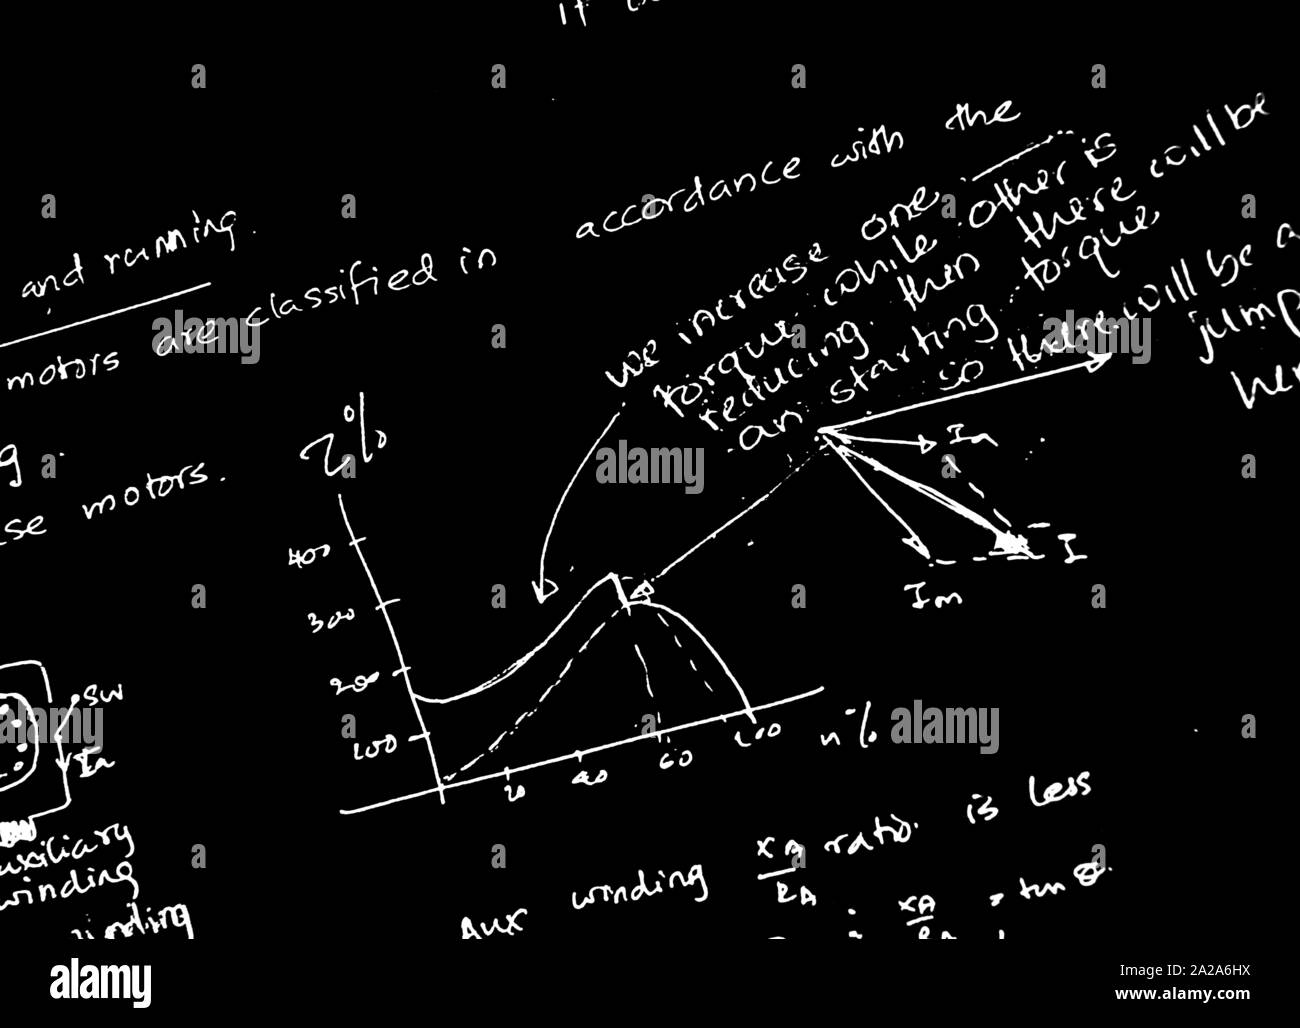 and running.
motors are classified in accordance with the
se motors.
we increase one
torque while other is
reducing. then there will be
an starting torque
so there will be a
jump
τ%
400
300
200
100
20
40
60
100
n%
Ia
I
Im
SW
Ia
auxiliary
winding
winding
Aux winding XA/RA ratio. is less
XA/RA = tan θ.
alamy
Image ID: 2A2A6HX
www.alamy.com